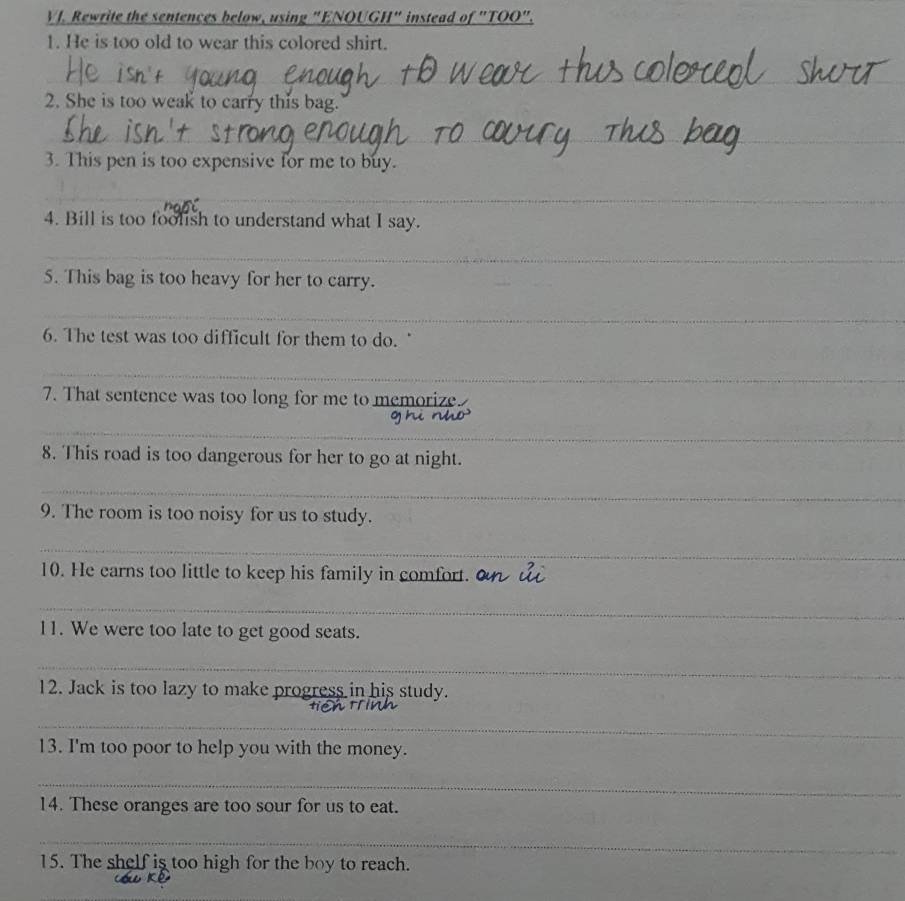 VI. Rewrite the sentences below, using "ENOUGH" instead of "TOO".
1. He is too old to wear this colored shirt.
He isn't young enough to wear this colored shirt
2. She is too weak to carry this bag.
She isn't strong enough TO carry This bag
3. This pen is too expensive for me to buy.
ngốc
4. Bill is too foolish to understand what I say.
5. This bag is too heavy for her to carry.
6. The test was too difficult for them to do.
7. That sentence was too long for me to memorize.
ghi nhớ
8. This road is too dangerous for her to go at night.
9. The room is too noisy for us to study.
10. He earns too little to keep his family in comfort. an ủi
11. We were too late to get good seats.
12. Jack is too lazy to make progress in his study.
tiến trình
13. I'm too poor to help you with the money.
14. These oranges are too sour for us to eat.
15. The shelf is too high for the boy to reach.